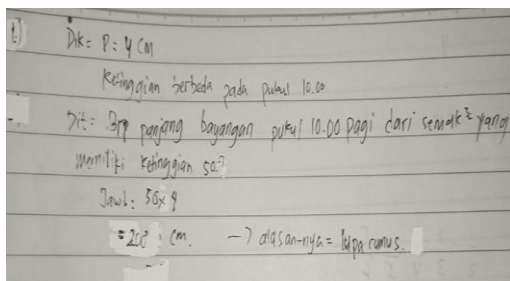 1.) Dik = P = 4 cm
Ketinggian berbeda pada pukul 10.00
Dit = Brp panjang bayangan pukul 10.00 pagi dari semak² yang
memiliki ketinggian 50?
Jawb: 50x4
= 200 cm. → alasan-nya = lupa rumus.